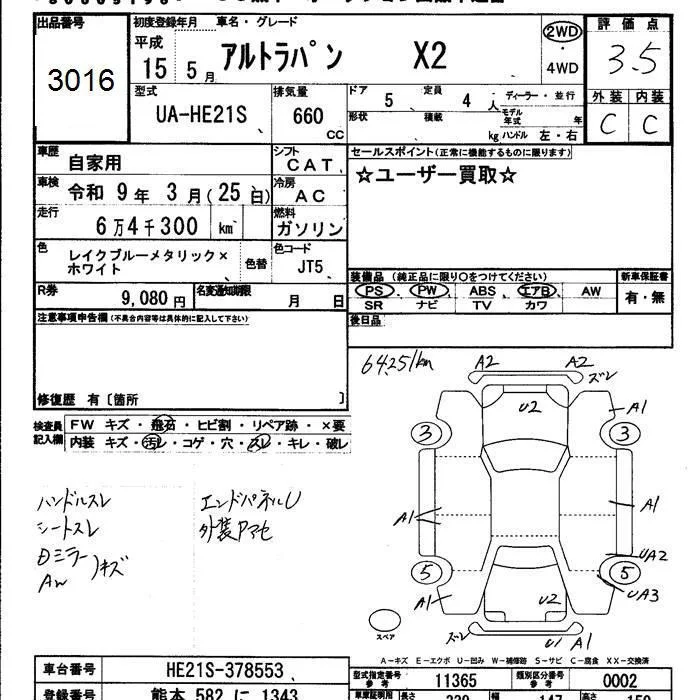 出品番号 初度登録年月 車名・グレード 評価点
3016 平成 15 5月 アルトラパン X2 2WD 4WD 3.5
型式 排気量 ドア 5 定員 4人 ディーラー・並行 外装 内装
UA-HE21S 660 CC 形状 積載 kg モデル年式 年 ハンドル 左・右 C C
車歴 自家用 シフト CAT セールスポイント(正常に機能するものに限ります)
車検 令和 9年 3月(25日) 冷房 AC ☆ユーザー買取☆
走行 6万4千300 km 燃料 ガソリン
色 レイクブルーメタリック×ホワイト 色替 色コード JT5
装備品 (純正品に限り○をつけてください) 新車保証書
PS PW ABS エアB AW 有・無
SR ナビ TV カワ
R券 9,080円 名変通知期限 月 日
後日品
注意事項申告欄(不具合内容等は具体的に記入して下さい)
修復歴 有〔箇所 〕
検査員記入欄 FW キズ・飛石・ヒビ割・リペア跡・×要
内装 キズ・汚レ・コゲ・穴・スレ・キレ・破レ
64251km
A2 A2 ズレ
U2 A1
3 3
A1 A1
UA2
5 5
A1 U2 UA3
ズレ U1 A1
スペア
ハンドルスレ
シートスレ
Dミラー
AW
キズ
エンドパネルU
外装アマセ
A-キズ E-エクボ U-凹み W-補修跡 S-サビ C-腐食 XX-交換済
車台番号 HE21S-378553 型式指定番号 参考 11365 類別区分番号 参考 0002
登録番号 熊本 582 に 1343 長さ 339 幅 147 高さ 150